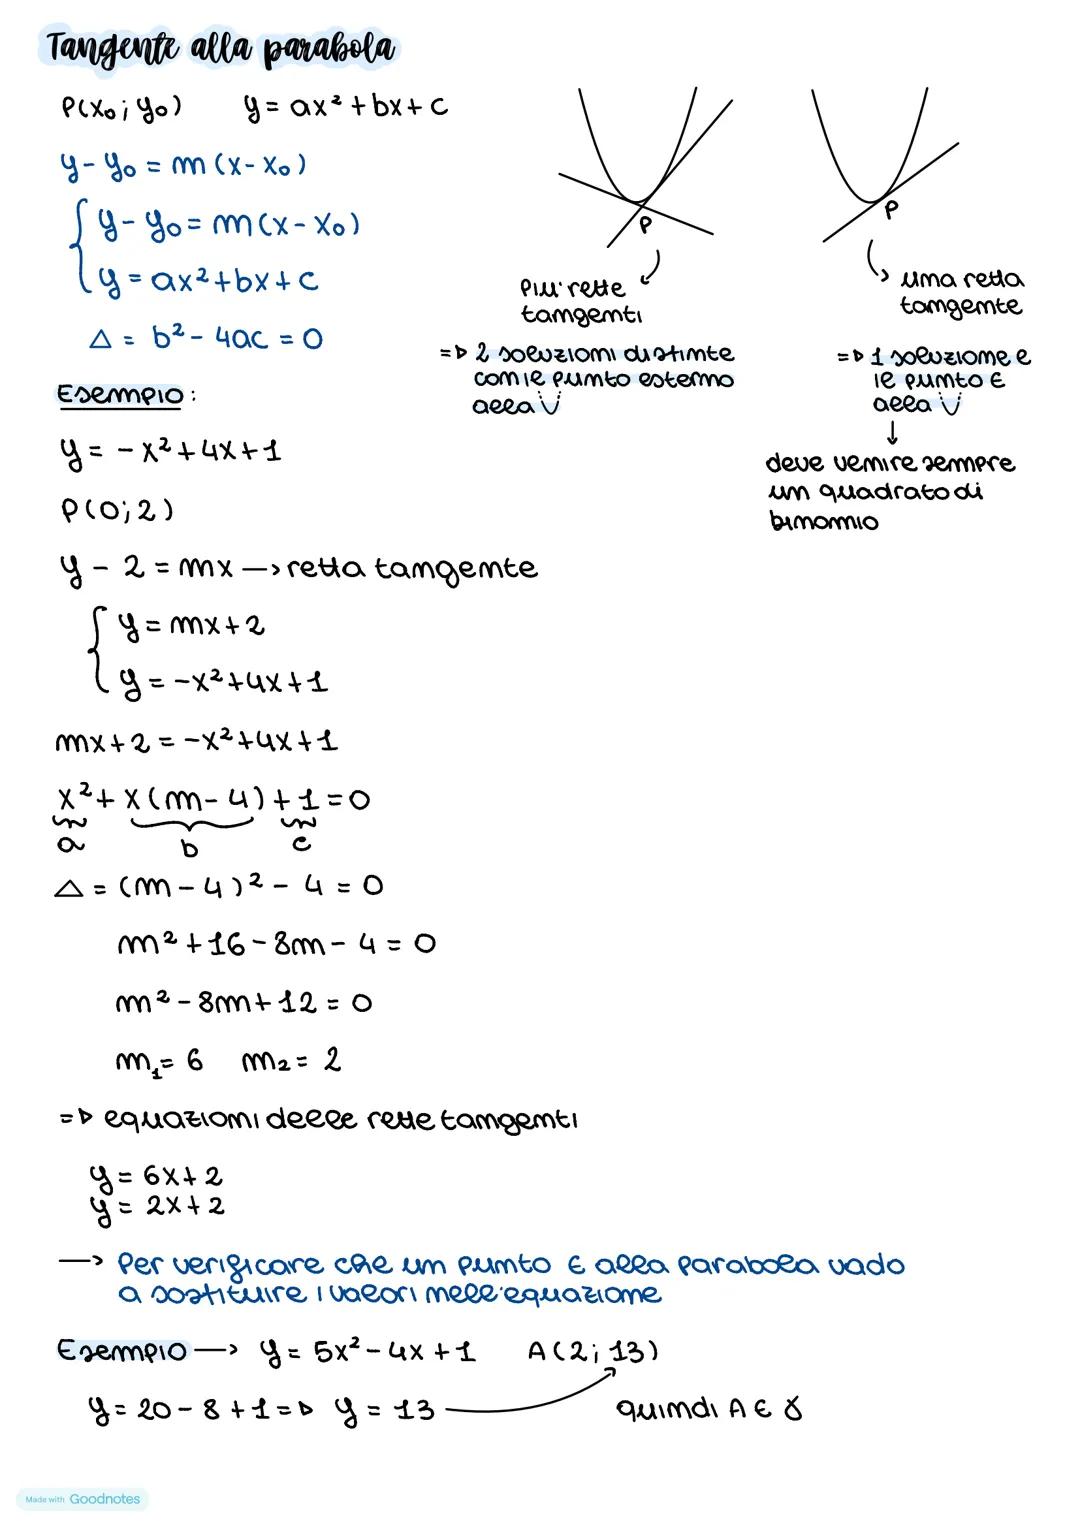 Tangente alla parabola
P(x₀; y₀) y = ax² + bx + c
y - y₀ = m (x - x₀)
{ y - y₀ = m (x - x₀)
y = ax² + bx + c
Δ = b² - 4ac = 0
P
Più rette
tangenti
=> 2 soluzioni distinte
con il punto esterno
alla ∪
P
una retta
tangente
=> 1 soluzione e
il punto ∈
alla ∪
↓
deve venire sempre
un quadrato di
binomio
Esempio:
y = - x² + 4x + 1
P(0; 2)
y - 2 = mx —> retta tangente
{ y = mx + 2
y = -x² + 4x + 1
mx + 2 = -x² + 4x + 1
x² + x (m - 4) + 1 = 0
a b c
Δ = (m - 4)² - 4 = 0
m² + 16 - 8m - 4 = 0
m² - 8m + 12 = 0
m₁ = 6 m₂ = 2
=> equazioni delle rette tangenti
y = 6x + 2
y = 2x + 2
—> Per verificare che un punto ∈ alla parabola vado
a sostituire i valori nell'equazione
Esempio —> y = 5x² - 4x + 1 A(2; 13)
y = 20 - 8 + 1 => y = 13 quindi A ∈ γ
Made with Goodnotes